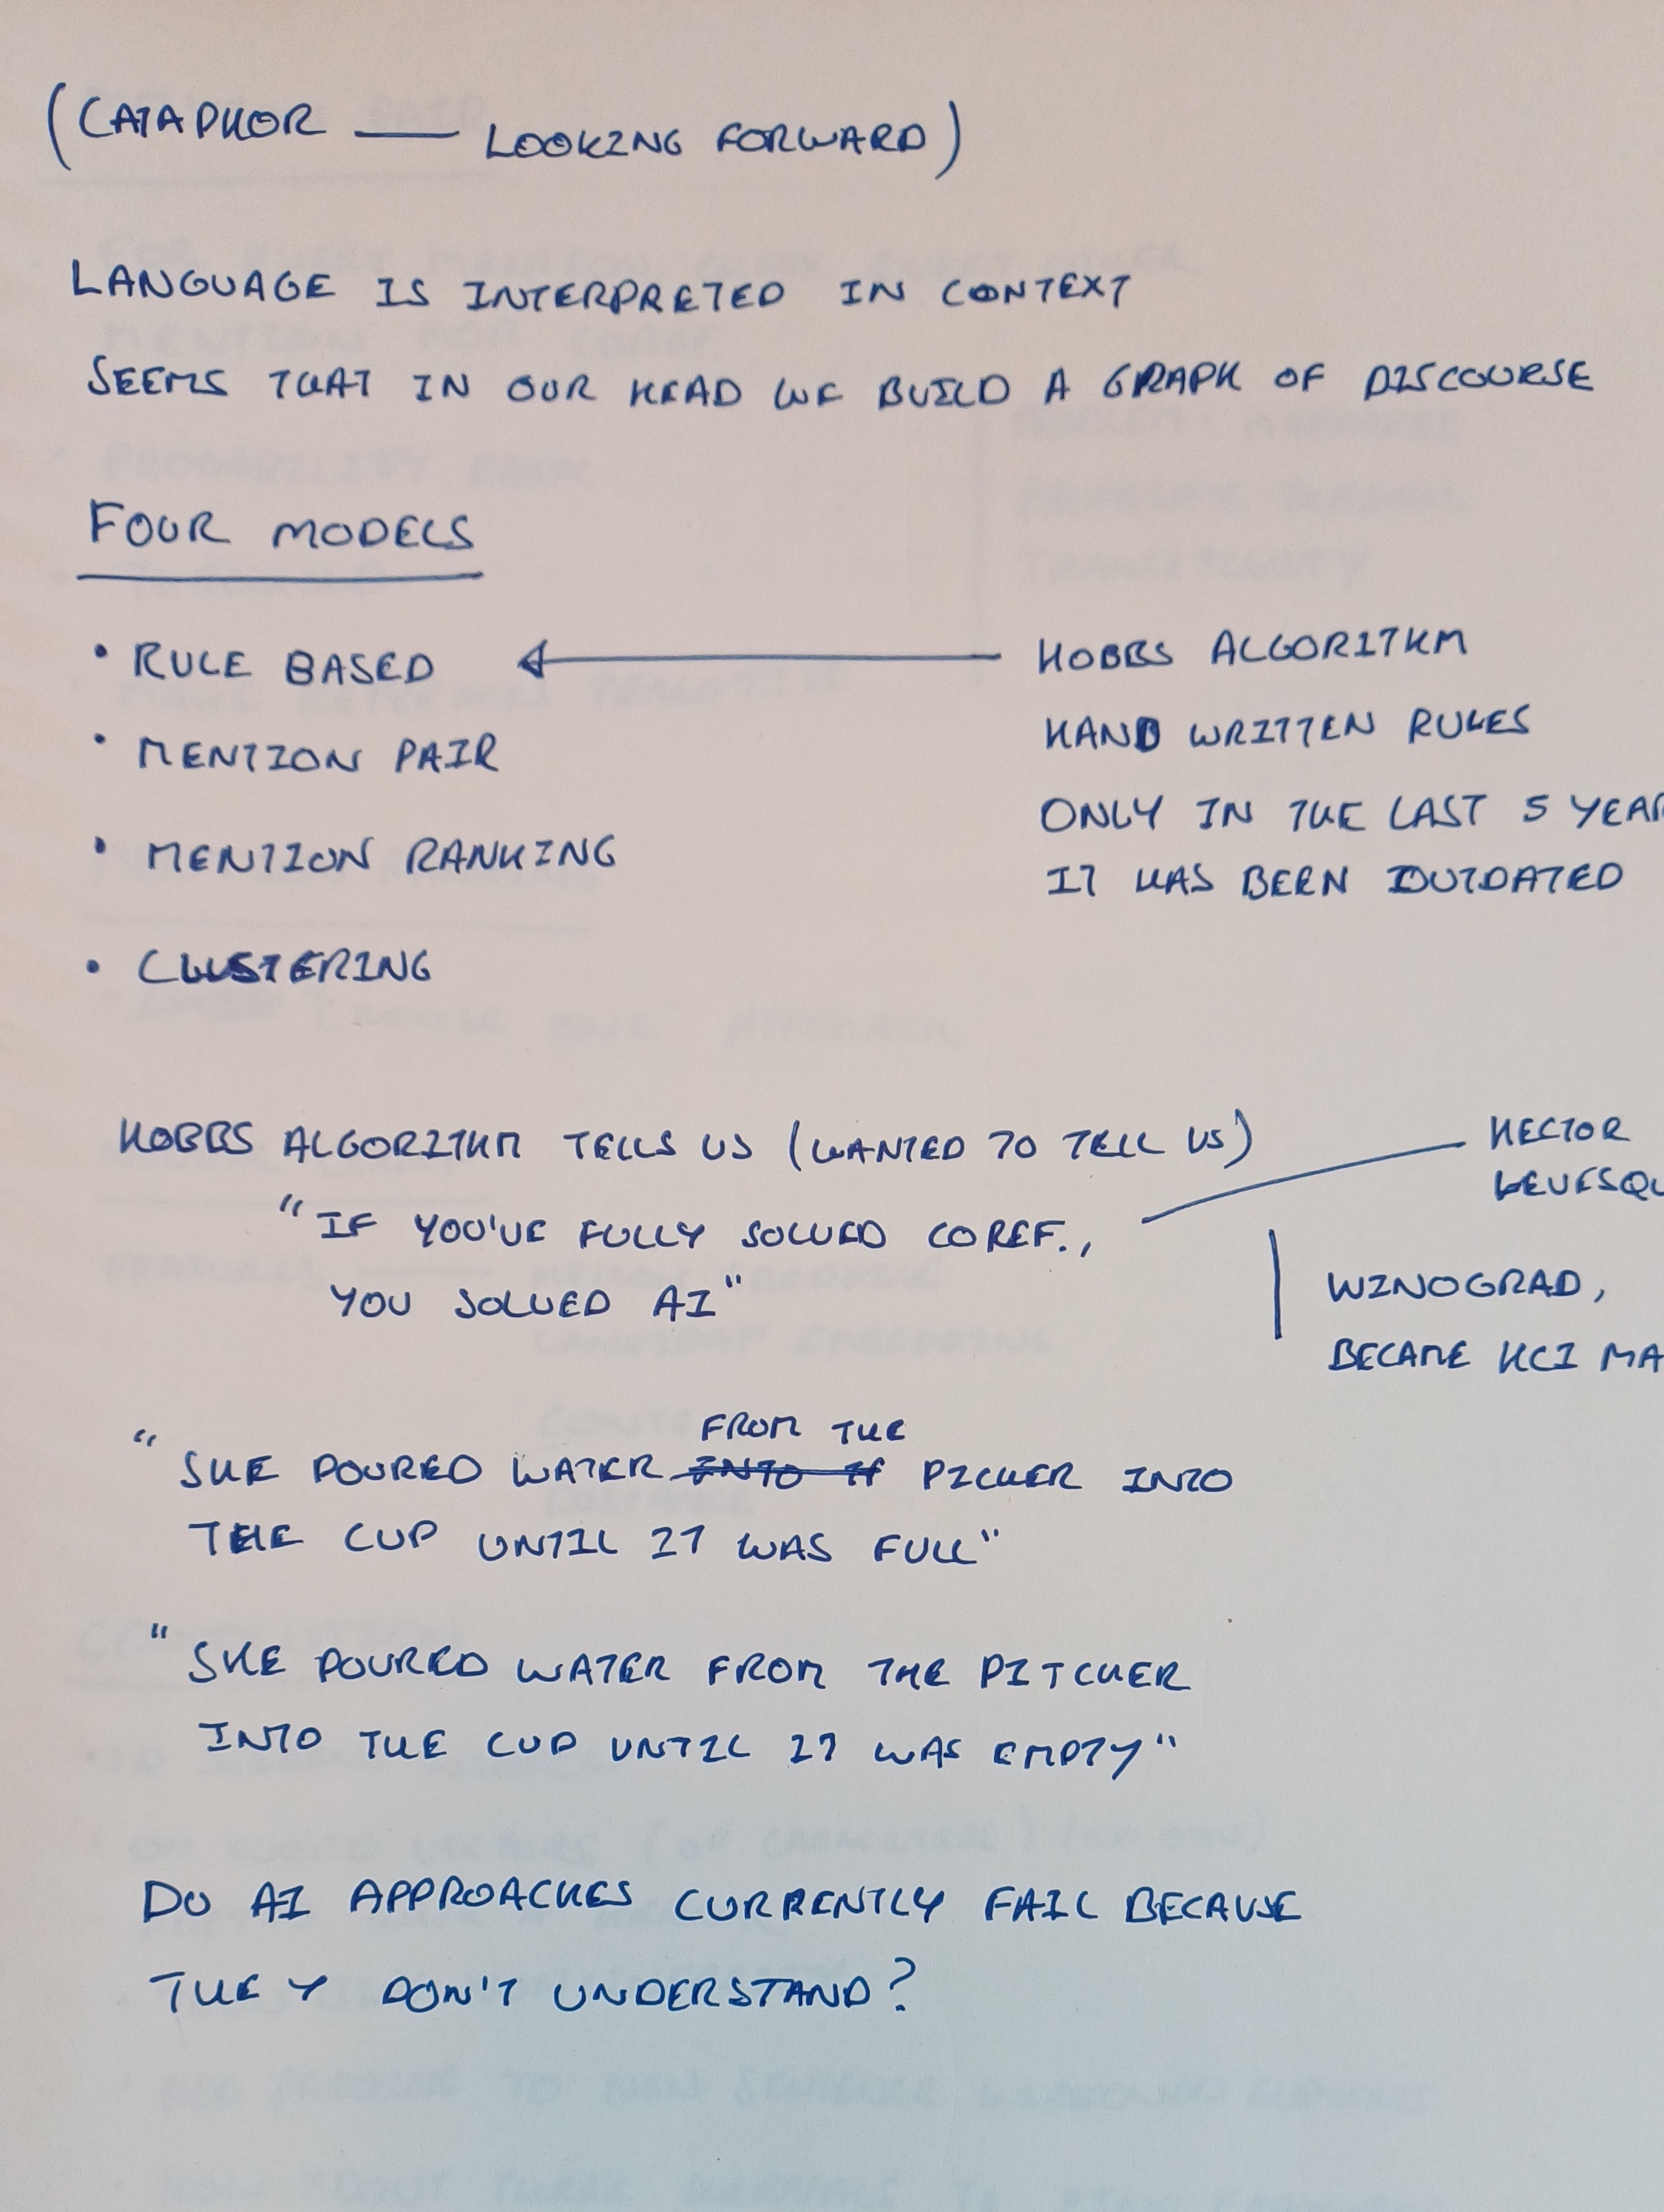 (CATAPHOR — LOOKING FORWARD)
LANGUAGE IS INTERPRETED IN CONTEXT
SEEMS THAT IN OUR HEAD WE BUILD A GRAPH OF DISCOURSE
FOUR MODELS
• RULE BASED
HOBBS ALGORITHM
• MENTION PAIR
HAND WRITTEN RULES
ONLY IN THE LAST 5 YEAR
• MENTION RANKING
IT HAS BEEN OUTDATED
• CLUSTERING
HOBBS ALGORITHM TELLS US (WANTED TO TELL US)
HECTOR
LEVESQU
"IF YOU'VE FULLY SOLVED COREF.,
YOU SOLVED AI"
WINOGRAD,
BECAME HCI MA
FROM THE
"SHE POURED WATER PICHER INTO
THE CUP UNTIL IT WAS FULL"
"SHE POURED WATER FROM THE PITCHER
INTO THE CUP UNTIL IT WAS EMPTY"
DO AI APPROACHES CURRENTLY FAIL BECAUSE
THEY DON'T UNDERSTAND?